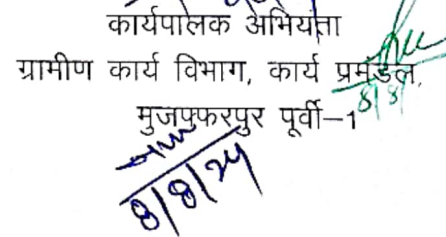 कार्यपालक अभियंता
ग्रामीण कार्य विभाग, कार्य प्रमंडल,
मुजफ्फरपुर पूर्वी–1
8/8
8/8/24